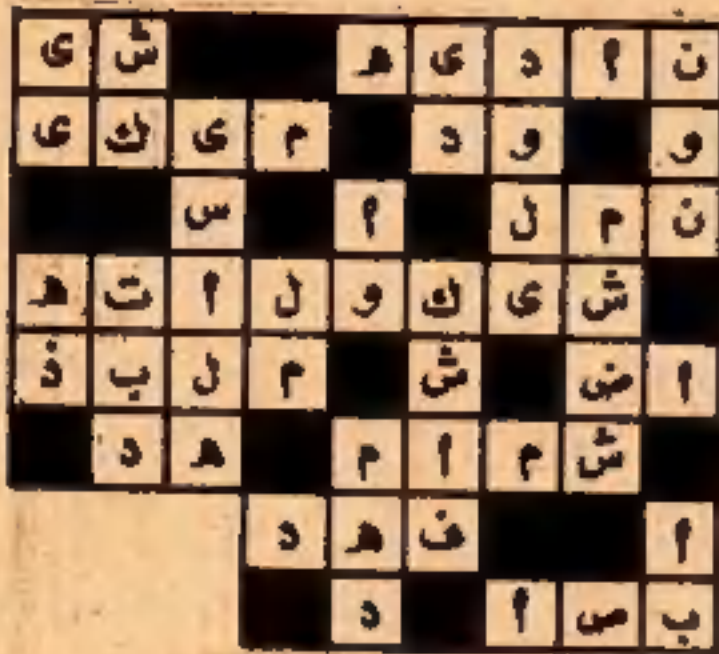 ن ا د ی ه ش ی
و و د م ی ك ی
ن م ل ا س
ش ی ك و ل ا ت ه
ا ض ش م ل ب ذ
ش م ا م ه د
ا ف ه د
ب ص ا د